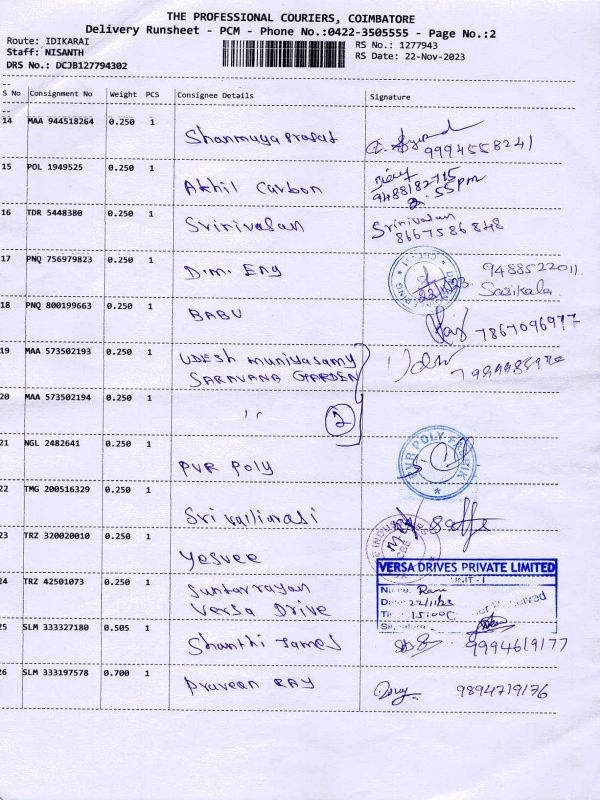 THE PROFESSIONAL COURIERS, COIMBATORE
Delivery Runsheet - PCM - Phone No.:0422-3505555 - Page No.:2
Route: IDIKARAI
Staff: NISANTH
DRS No.: DCJB127794302
RS No.: 1277943
RS Date: 22-Nov-2023
S No Consignment No Weight PCS Consignee Details Signature
14 MAA 944518264 0.250 1 Shanmuga prasat 9994558241
15 POL 1949525 0.250 1 Akhil Carbon 9488182715
2.55pm
16 TDR 5448380 0.250 1 Srinivasan Srinivasan
8667586848
17 PNQ 756979823 0.250 1 D.M. Eng 9488522011
Sasikala
18 PNQ 800199663 0.250 1 BABU 7867096977
19 MAA 573502193 0.250 1 UDESH muniyasamy
SARAVANA GARDEN
20 MAA 573502194 0.250 1 " 2
21 NGL 2482641 0.250 1 PVR Poly
PVR POLY
22 TMG 200516329 0.250 1 Sri valliarasi
23 TRZ 320020010 0.250 1 Yesvee
24 TRZ 42501073 0.250 1 Suntarrayan
Versa Drive
VERSA DRIVES PRIVATE LIMITED
UNIT - I
Name: Ram
Date: 22/11/23
15:00
25 SLM 333327180 0.505 1 Shanthi James 9994619177
26 SLM 333197578 0.700 1 Praveen RAY 9894719176